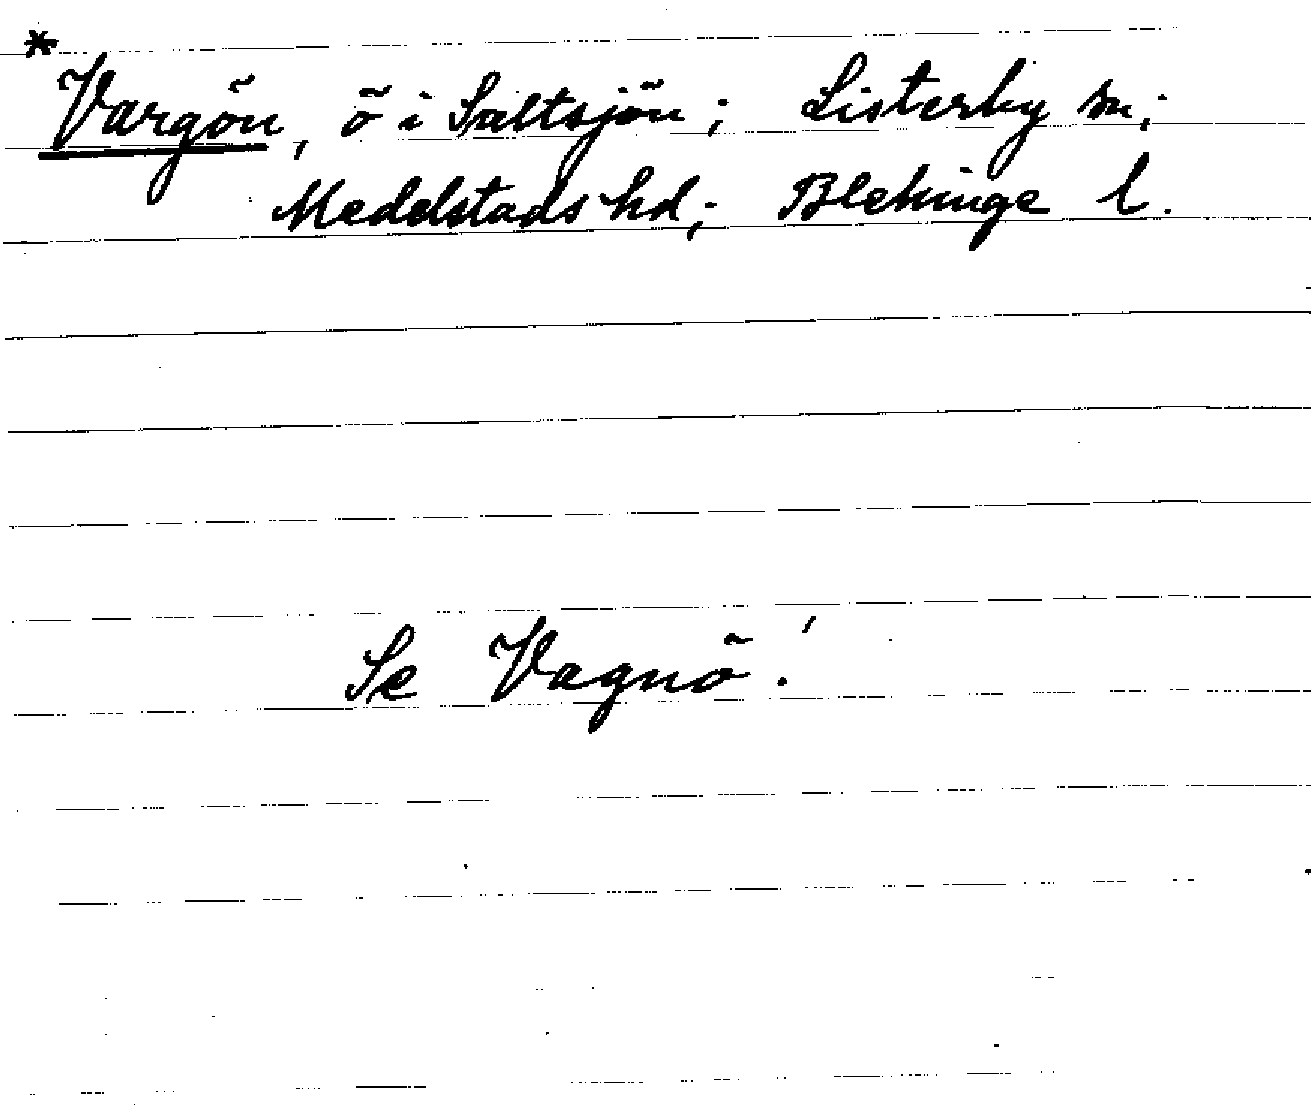 * Vargön, ö i Saltsjön; Listerby sn;
Medelstads hd; Blekinge l.
Se Vagnö!